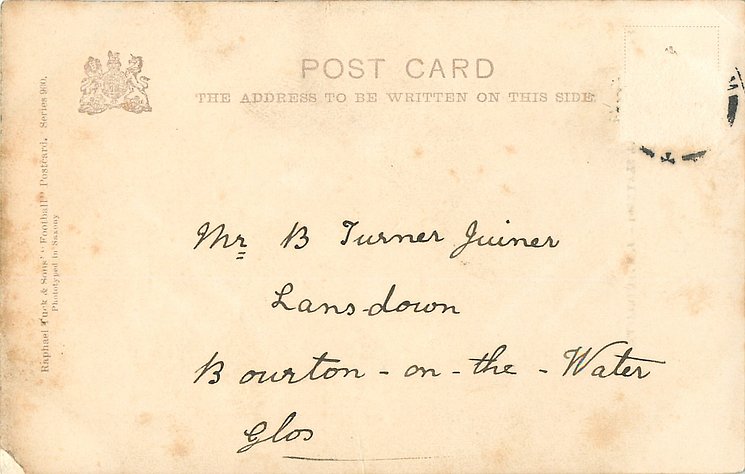 POST CARD
THE ADDRESS TO BE WRITTEN ON THIS SIDE
Raphael Tuck & Sons' "Football" Postcard. Series 960.
Phototyped in Saxony
Mr B Turner Juiner
Lansdown
Bourton-on-the-Water
Glos